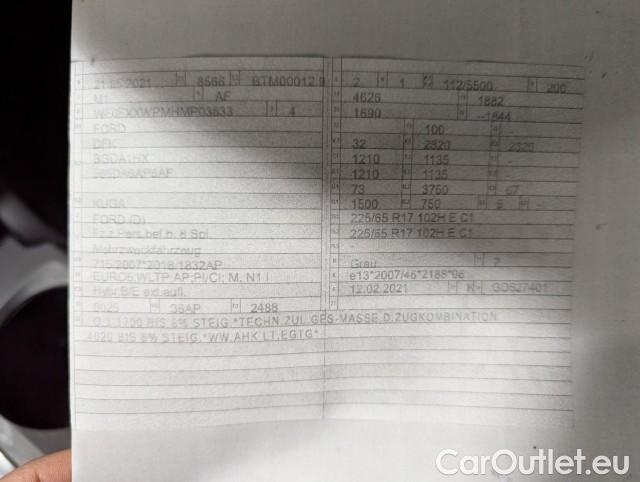 21.05.2021 8566 BTM00012 9
M1 AF
4
FORD
DFK
KUGA
FORD (D)
Fz.z.Pers.bef.b. 8 Spl.
Mehrzweckfahrzeug
715/2007*2018/1832AP
EURO6 WLTP AP;PI/CI; M, N1 I
Hybr.B/E ext.aufl.
0025 36AP 2488
2 1 112/5500 200
4626 1882
1690 --1844
100 -
32 2320 2320
1210 1135 -
1210 1135 -
73 3750 67
1500 750 5 -
225/65 R17 102H E C1
225/65 R17 102H E C1
-
Grau 7
e13*2007/46*2188*06
12.02.2021 K
O.1:1700 BIS 8% STEIG.*TECHN.ZUL.GES-MASSE D.ZUGKOMBINATION
4020 BIS 8% STEIG.*WW.AHK LT.EGTG*
CarOutlet.eu